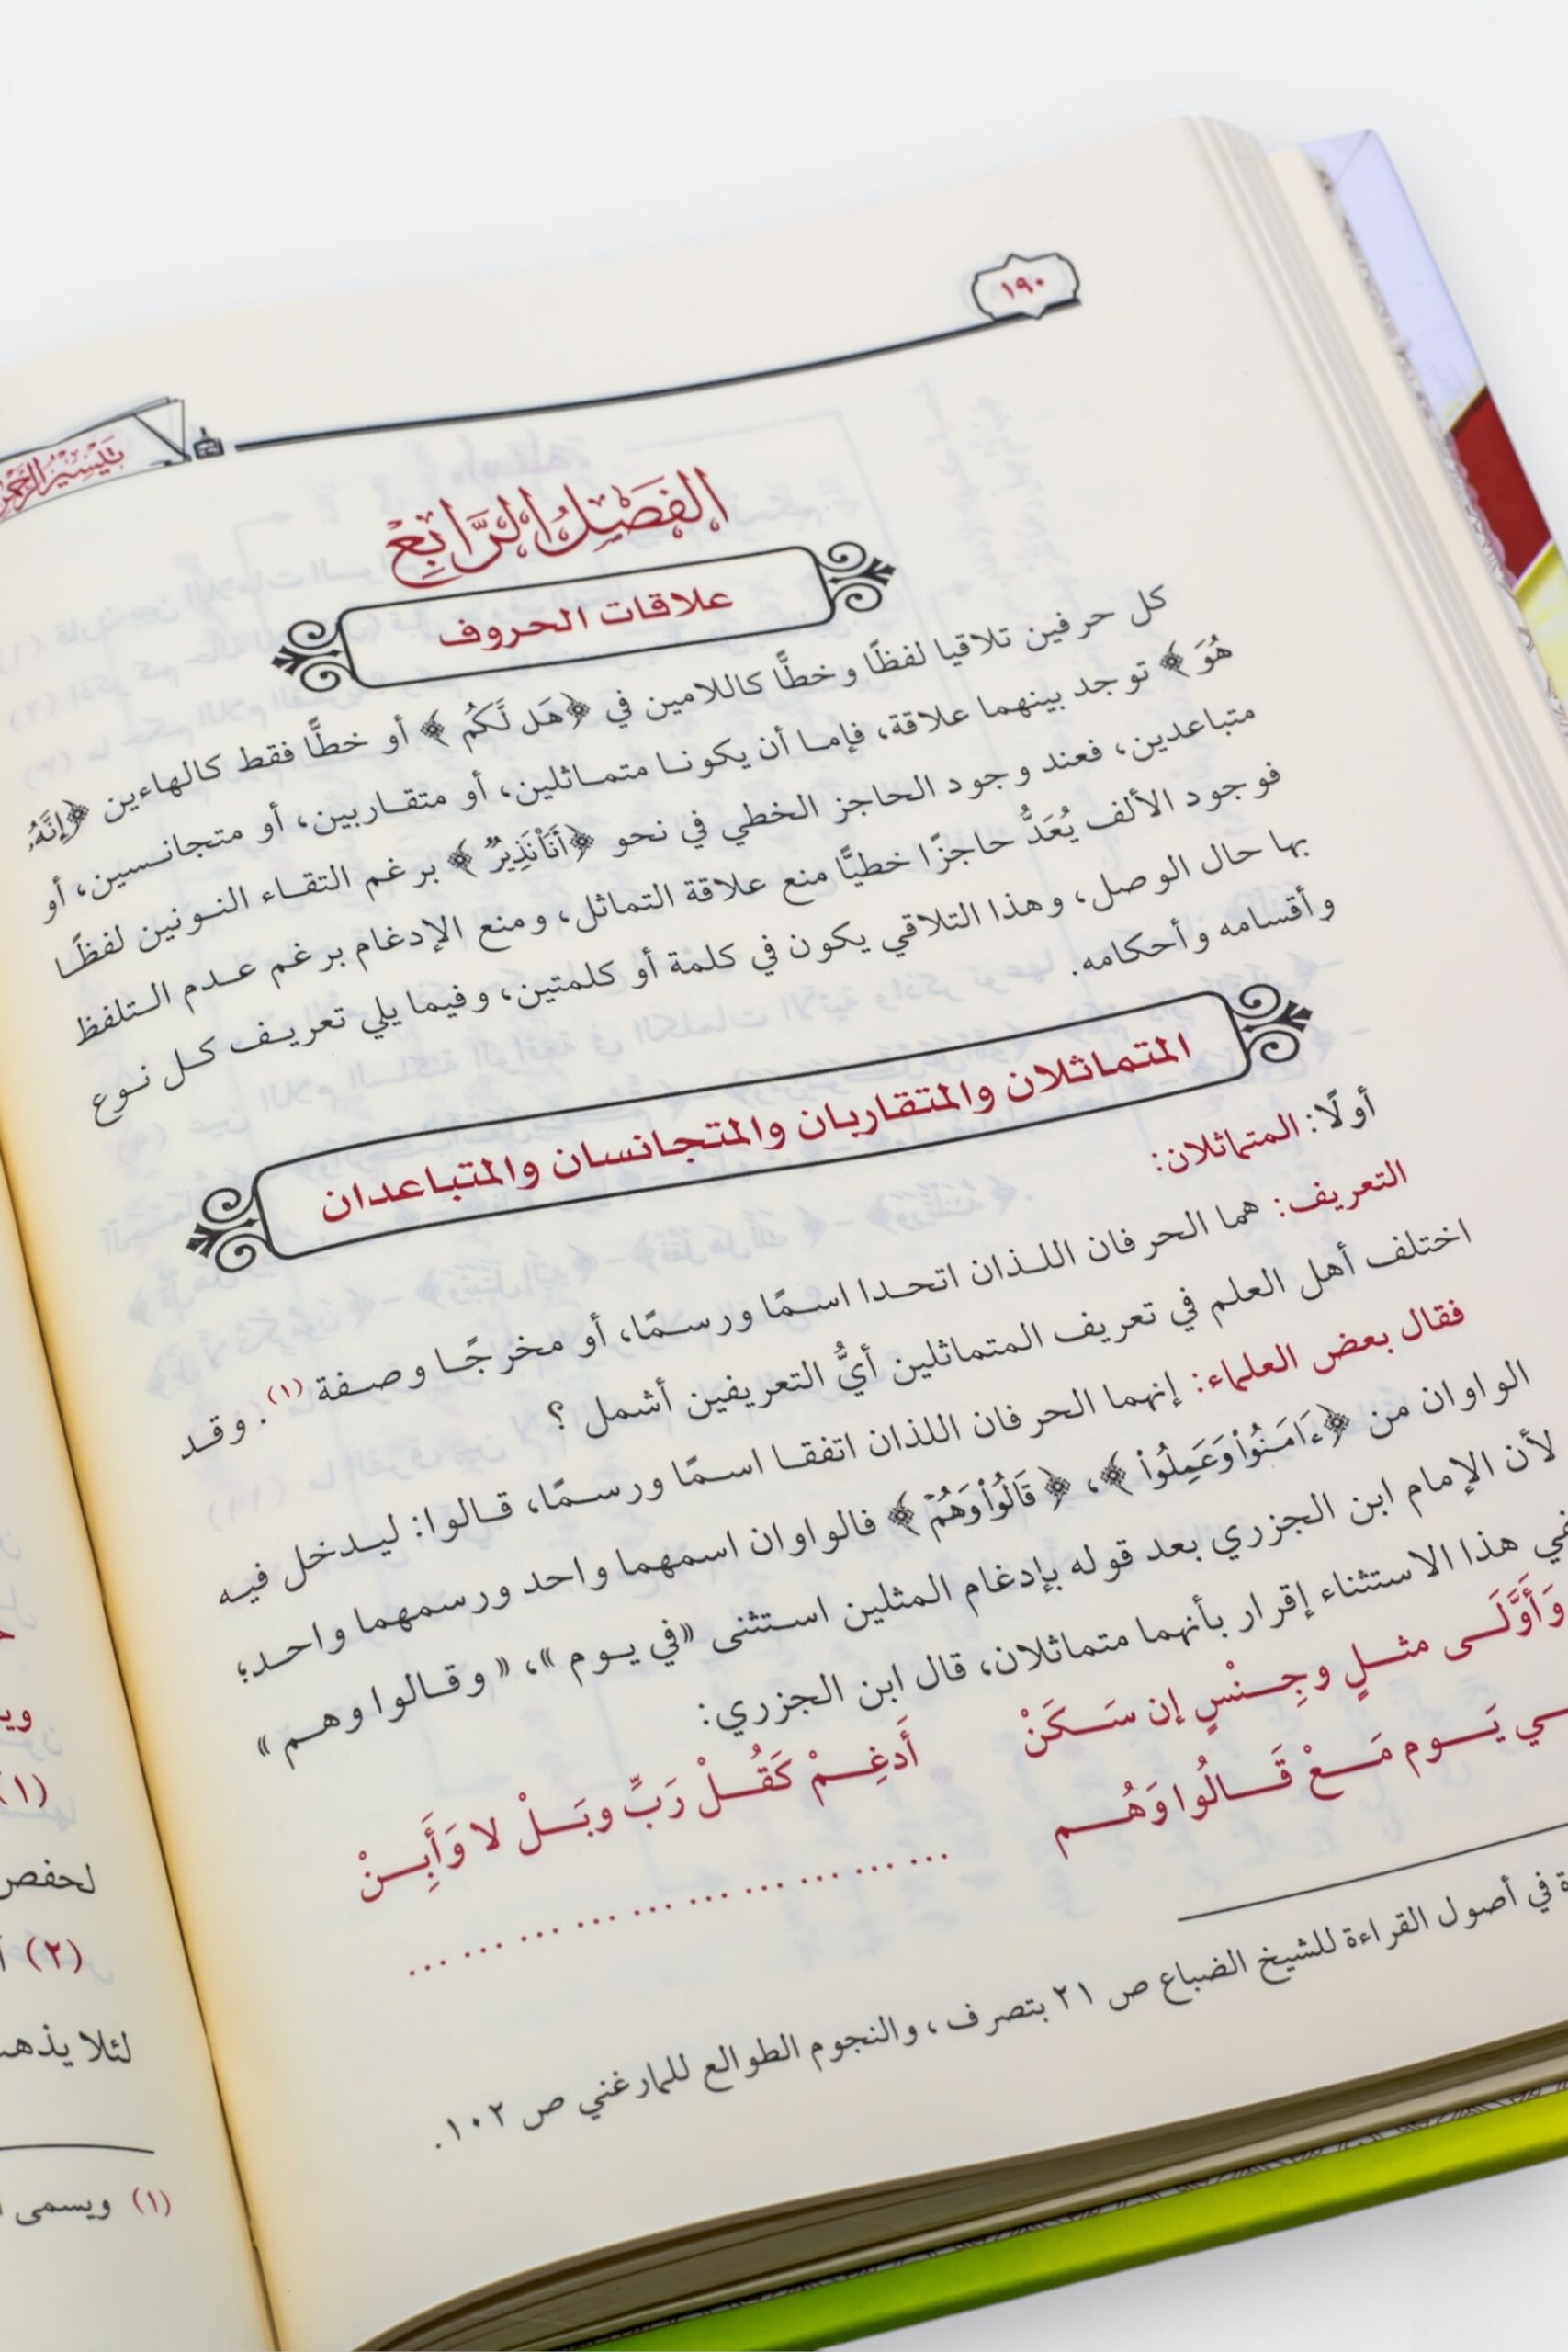 ١٩٠
تيسير الرحمن
الفصل الرابع
علاقات الحروف
كل حرفين تلاقيا لفظًا وخطًّا كاللامين في ﴿هَل لَّكُم﴾ أو خطًّا فقط كالهاءين ﴿إِنَّهُۥ
هُوَ﴾ توجد بينهما علاقة، فإما أن يكونا متماثلين، أو متقاربين، أو متجانسين، أو
متباعدين، فعند وجود الحاجز الخطي في نحو ﴿أَنَا۠ نَذِيرٌ﴾ برغم التقاء النونين لفظًا
فوجود الألف يُعَدُّ حاجزًا خطيًّا منع علاقة التماثل، ومنع الإدغام برغم عدم التلفظ
بها حال الوصل، وهذا التلاقي يكون في كلمة أو كلمتين، وفيما يلي تعريف كل نوع
وأقسامه وأحكامه.
المتماثلان والمتقاربان والمتجانسان والمتباعدان
أولًا: المتماثلان:
التعريف: هما الحرفان اللذان اتحدا اسمًا ورسمًا، أو مخرجًا وصفة (١). وقد
اختلف أهل العلم في تعريف المتماثلين أيُّ التعريفين أشمل ؟
فقال بعض العلماء: إنهما الحرفان اللذان اتفقا اسمًا ورسمًا، قالوا: ليدخل فيه
الواوان من ﴿ءَامَنُوا۟ وَعَمِلُوا۟﴾، ﴿قَالُوا۟ وَهُمْ﴾ فالواوان اسمهما واحد ورسمهما واحد؛
لأن الإمام ابن الجزري بعد قوله بإدغام المثلين استثنى «في يوم»، «وقالوا وهم»
في هذا الاستثناء إقرار بأنهما متماثلان، قال ابن الجزري:
وَأَوَّلَى مثلٍ وجِنْسٍ إن سَكَنْ أَدغِمْ كَقُلْ رَبِّ وبَلْ لا وَأَبِنْ
يَوم مَعْ قَالُوا وَهُم ... ... ... ... ... ... ... ... ... ...
في أصول القراءة للشيخ الضباع ص ٢١ بتصرف، والنجوم الطوالع للمارغني ص ١٠٢.
(١)
لحفص
(٢)
لئلا يذهب
(١) ويسمى